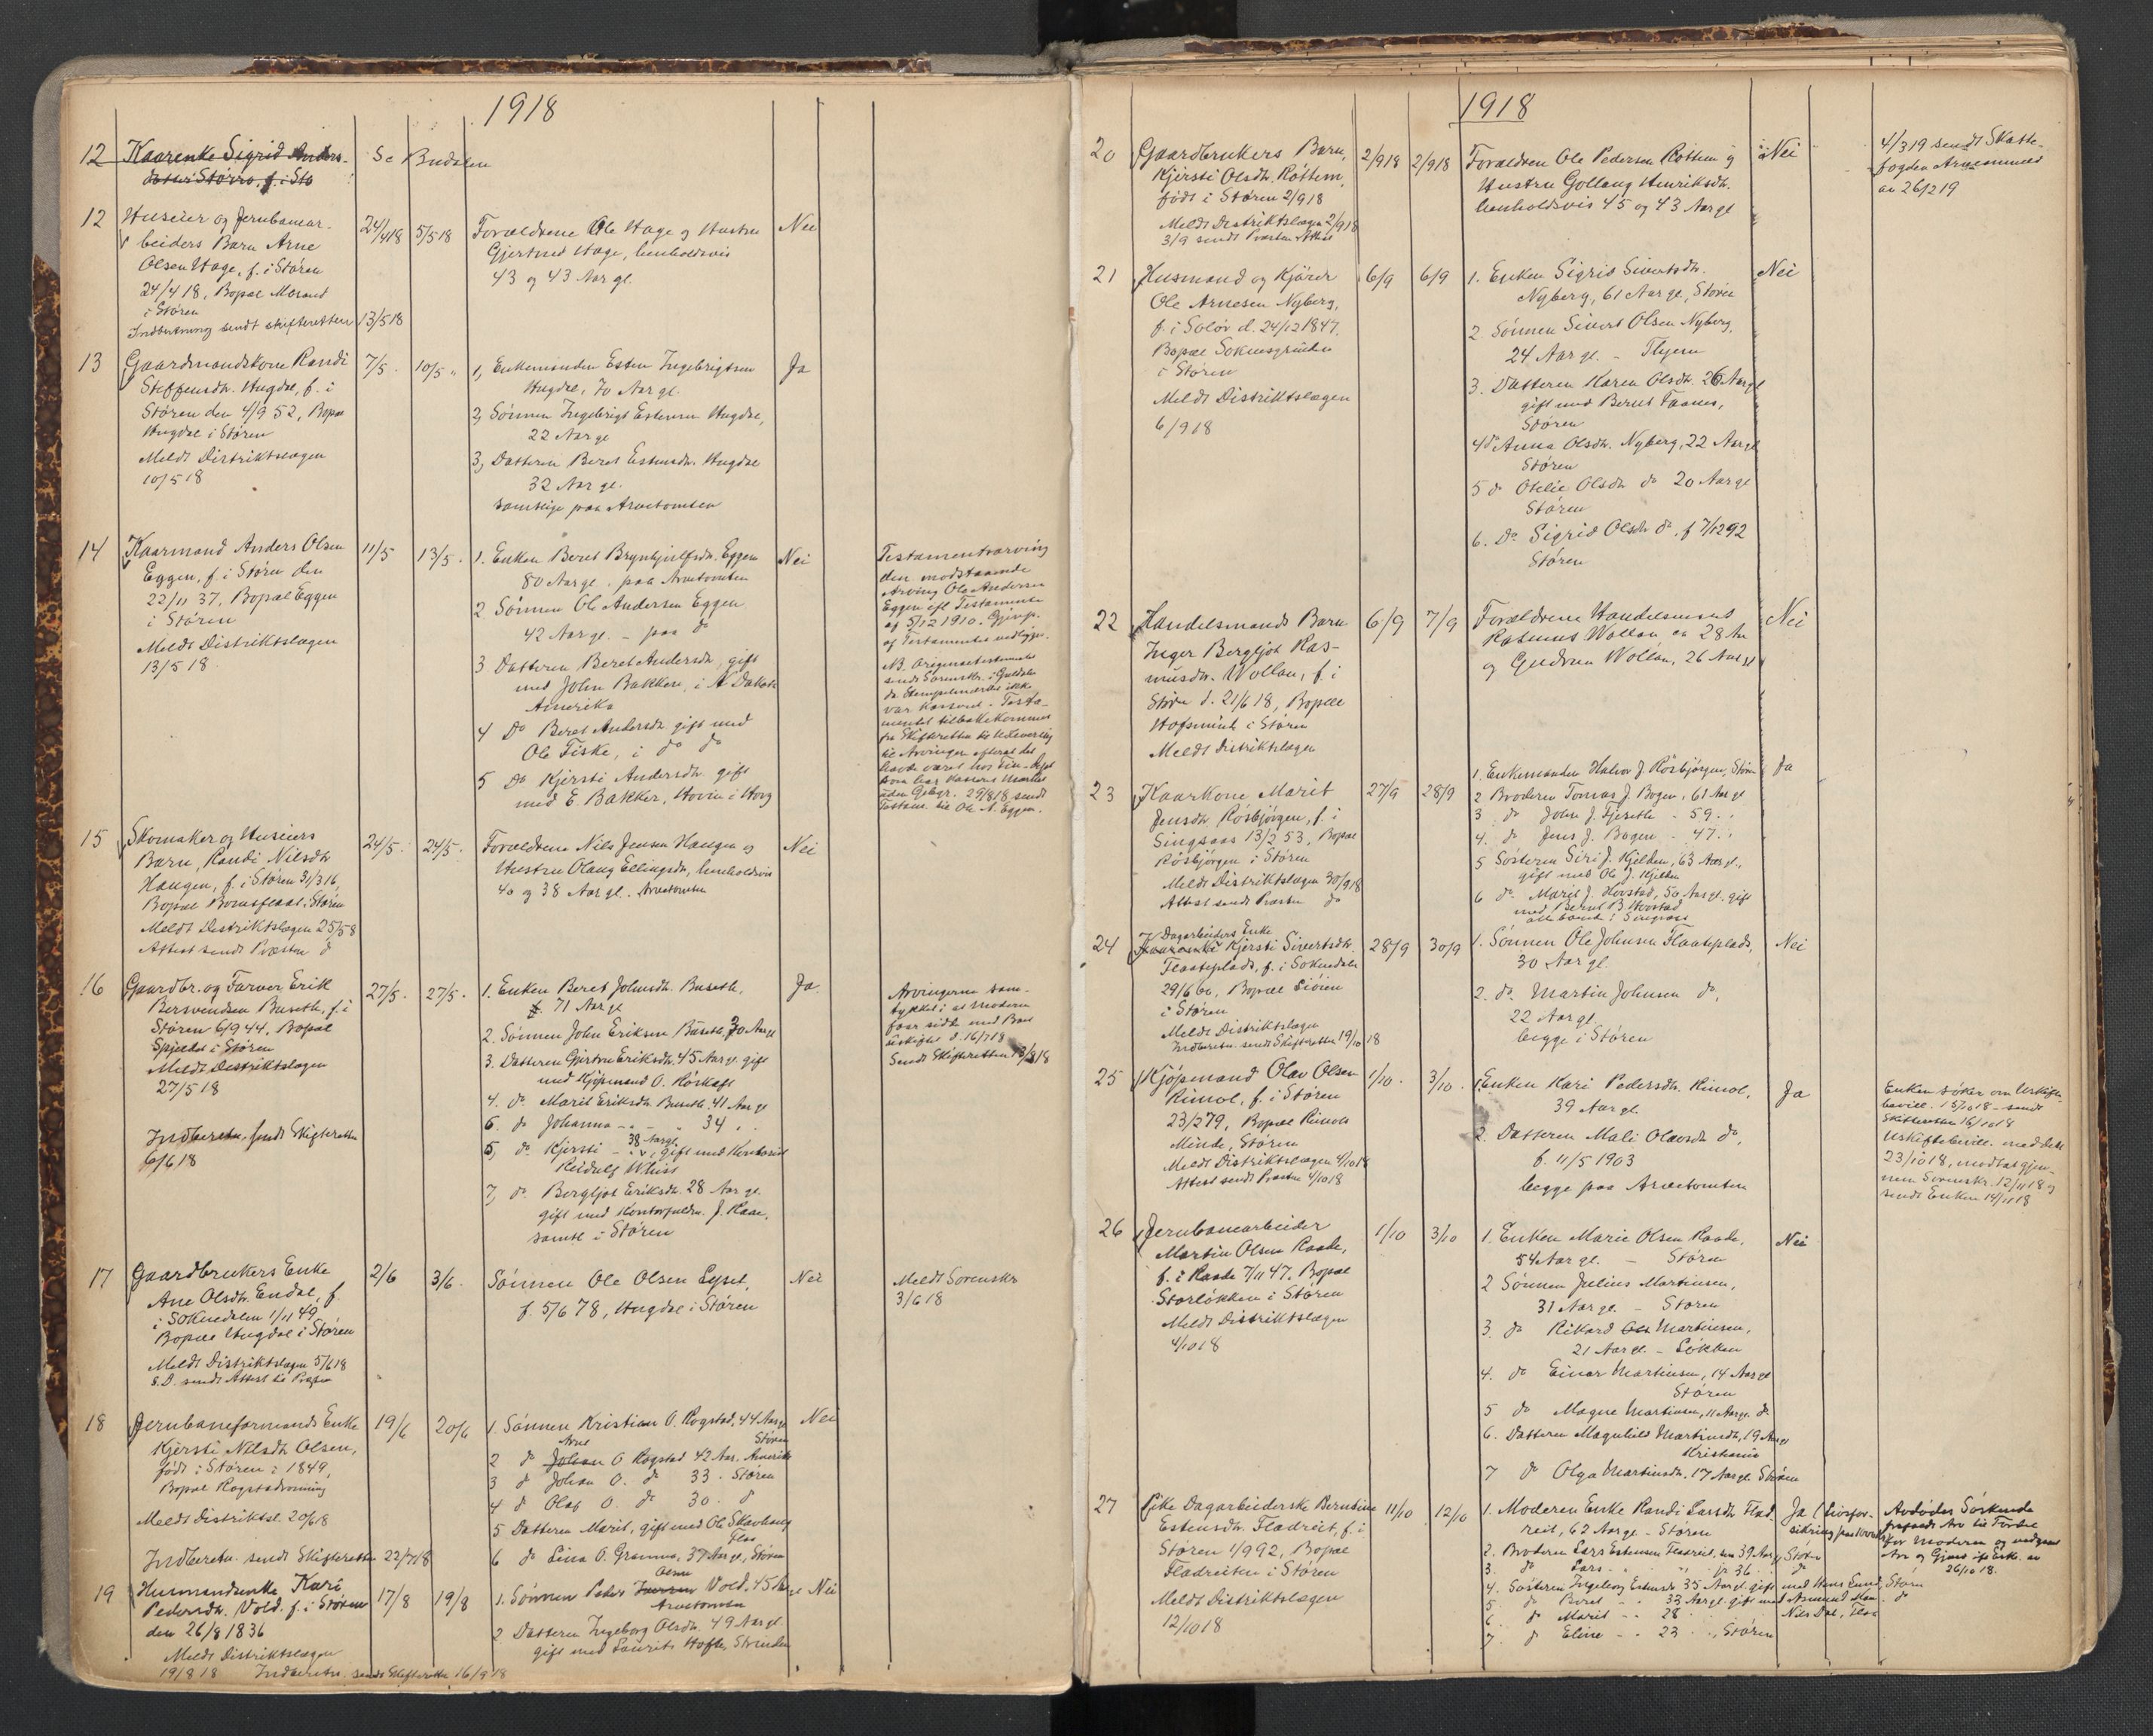 1918
12 Kaarenke Sigrid Anders-
datter Støvro, f. i Stø
Se Budalen
12 Huseier og Jernbanear-
beiders Barn Arne
Olsen Hage, f. i Støren
24/4 18, Bopæl Moland
i Støren
Indberetning sendt skifteretten 13/5 18
24/4 18
5/5 18
Forældrene Ole Hage og Hustru
Gjertrud Hage, henholdsvis
43 og 43 Aar gl.
Nei
13 Gaardmandskone Randi
Steffensdtr. Hugdal, f. i
Støren den 4/9 52, Bopæl
Hugdal i Støren
Meldt Distriktslægen
10/5 18
7/5
10/5
1, Enkemanden Esten Ingebrigtsen
Hugdal, 70 Aar gl.
2, Sønnen Ingebrigt Estensen Hugdal,
22 Aar gl
3, Datteren Beret Estensdtr. Hugdal
32 Aar gl.
samtlige paa Arvetomten
Ja
14 Kaarmand Anders Olsen
Eggen, f. i Støren den
22/11 37, Bopæl Eggen
i Støren
Meldt Distriktslægen
13/5 18
11/5
13/5
1. Enken Beret Brynhjulfsdr. Eggen
80 Aar gl. paa Arvetomten
2 Sønnen Ole Andersen Eggen
42 Aar gl. – paa do
3 Datteren Beret Andersdr, gift
med John Bakken, i N Dakota
Amerika
4 Do Beret Andersdr gift med
Ole Fiske, i do do
5 Do Kjersti Andersdr. gift
med E. Bakker, Hovin i Horg
Nei
Testamentarving
den modstaaende
Arving Ole Andersen
Eggen efl Testamente
af 5/12 1910. Gjenp.
af Testamentet vedligger.
NB. Originaltestamentet
sendt Sorenskr. i Guldal
da Stempelmærket ikke
var kasseret – Testa-
mentet tilbakekommet
fra Skifteretten til Utlevering
til Arvingen efterat det
havde været hos Fin-Dept
som har kasseret Merket
uden Gebyr. 29/8 18 sendt
Testam. til Ole A. Eggen.
15 Skomaker og Huseiers
Barn, Randi Nilsdtr
Haugen, f. i Støren 31/3 16,
Bopæl i Støren
Meldt Distriktslægen 25/5 8
Attest sendt Præsten do
24/5
24/5
Forældrene Nils Jensen Haugen og
Hustru Olaug Ellingsdr, henholdsvis
40 og 38 Aar gl. Arvetomten
Nei
16 Gaardbr. og Farver Erik
Bersvendsen Buseth, f. i
Støren 6/9 44, Bopæl
Spjeldet i Støren
Meldt Distriktslægen
27/5 18
Indberetn. sendt Skifteretten
6/6 18
27/5
27/5
1. Enken Beret Johnsdr. Buseth,
71 Aar gl
2. Sønnen John Eriksen Buseth, 30 Aar gl
3. Datteren Gjertru Eriksdr. 45 Aar gl. gift
med Kjøpmand O. Rørkaft
4. do Marit Eriksdr. Buseth, 41 Aar gl
6. do Johanna – – – 34 . .
38 Aar gl.
5, do Kjersti – . . , gift med Kontorist
Reidulf
7, do Bergljot Eriksdr. 28 Aar gl.
gift med Kontorfuldm. J. Raae,
samtl i Støren
Ja
Arvingerne sam-
tykket i at Moderen
faar sidde med Boet
uskiftet d. 16/7 18
Sendt Skifteretten 13/8 18
17 Gaardbrukers Enke
Ane Olsdtr. Endal, f.
i Soknedalen 1/11 49
Bopæl Hugdal i Støren
Meldt Distriktslægen 5/6 18
s.D. sendt Attest til Præsten
2/6
3/6
Sønnen Ole Olsen Lyset,
f. 5/6 78, Hugdal i Støren
Nei
Meldt Sorenskr
3/6 18
18 Jernbaneformands Enke
Kjersti Nilsdtr Olsen,
født i Støren i 1849,
Bopæl Rogstadvonning
Meldt Distriktsl. 20/6 18
Indberetn. sendt Skifteretten 22/7 18
19/6
20/6
1. Sønnen Kristian O. Rogstad, 44 Aar gl
Støren
Arnt
2 do Johan O Rogstad 42 Aar. Amerika
3 do Johan O. do 33 . Støren
4 do Olaf O. do 30 . do
5 Datteren Marit, gift med Ole Skavhaug
Flaa
6 do Lina O. Gramma, 37 Aar gl., Støren
Nei
19 Husmandsenke Kari
Pedersdr. Vold, f. i Støren
den 26/8 1836
Meldt Distriktslægen
19/8 18 Indberetn. sendt Skifteretten 16/9 18
17/8
19/8
Olsen
1. Sønnen Peder Vold, 45 Aar gl
Arvetomten
2 Datteren Ingeborg Olsdr. 49 Aar gl.
gift med Laurits Hoftn, Strinden
Nei
1918
20 Gaardbrukers Barn,
Kjersti Olsdtr. Rottem,
født i Støren 2/9 18
Meldt Distriktslægen 2/9 18
3/9 sendt Præsten Attest
2/9 18
2/9 18
Forældren Ole Pedersen Rottem og
Hustru Gollaug Henriksdr.
henholdsvis 45 og 43 Aar gl
Nei
4/3 19 sendt Skatte-
fogden Arveanmeld
av 26/2 19
21 Husmand og Kjører
Ole Arnesen Nyberg,
f. i Solør d. 24/12 1847.
Bopæl Soknesgrinden
i Støren
Meldt Distriktslægen
6/9 18
6/9
6/9
1. Enken Sigrid Sivertsdr.
Nyberg, 61 Aar gl., Støren
2. Sønnen Sivert Olsen Nyberg,
24 Aar gl. – Thyem
3. Datteren Karen Olsdr. 26 Aar gl
gift med Bernt Foanes,
Støren
4 do Anna Olsdr. Nyberg, 22 Aar gl
Støren
5 do Otelie Olsdr do 20 Aar gl
Støren
6. Do Sigrid Olsdr do, f 7/12 92
Støren
Nei
22 Handelsmands Barn
Inger Bergljot Ras-
musdr. Wollan, f. i
Støren d. 21/6 18, Bopæl
Hofsmint i Støren
Meldt distriktslægen
6/9
7/9
Forældrene Handelsmand
Rasmus Wollan ca 28 Aar
og Gudrun Wollan, 26 Aar gl
Nei
23 Kaarkone Marit
Jensdr Rösbjörgen, f. i
Singsaas 13/2 53, Bopæl
Rösbjörgen i Støren
Meldt Distriktslægen 30/9 18
Attest sendt Præsten do
27/9
28/9
1. Enkemanden Halvor J. Rösbjörgen, Støren
2 Broderen Tomas J. Bogen, 61 Aar gl
3 do John J. Fjeseth – 59 . .
4. do Jens J. Bogen – 47 . .
5 Søsteren Siri J. Kjelden, 63 Aar gl.,
gift med Ole J. Kjelden
6 do Marit J. Hovstad, 50 Aar gl. gift
med Bernt B Hovstad
alle boende i Singsaas
Ja
Dagarbeiders Enke
24 Kaarenke Kjersti Sivertsdr.
Flaateplads, f. i Soknedalen
29/6 60, Bopæl Liøien
i Støren
Meldt Distriktslægen
Indberetn. sendt Skifteretten 19/10 18
28/9
30/9
1. Sønnen Ole Johnsen Flaateplads,
30 Aar gl.
2. do Martin Johnsen do,
22 Aar gl.
begge i Støren
Nei
25 Kjøpmand Olav Olsen
Rimol, f. i Støren
23/2 79, Bopæl Rimols
Minde, Støren
Meldt Distriktslægen 4/10 18
Attest sendt Præsten 4/10 18
1/10
3/10
1. Enken Kari Pedersdr. Rimol,
39 Aar gl.
2. Datteren Mali Olavsdr do,
f. 11/5 1903
begge paa Arvetomten
Ja
Enken søker om Uskifte-
bevill. 15/10 18 – sendt
Skifteretten 16/10 18
Uskiftebevill. meddelt
23/10 18, modtat gjen-
nem Sorenskr. 12/11 18 og
sendt Enken 14/11 18
26 Jernbanearbeider
Martin Olsen Raade,
f. i Raade 7/11 47. Bopæl
Storløkken i Støren
Meldt Distriktslægen
4/10 18
1/10
3/10
1. Enken Marie Olsen Raade,
54 Aar gl. – Støren
2 Sønnen Julius Martinsen,
31 Aar gl. – Støren
3. do Rikard Ols Martinsen,
21 Aar gl. – Løkken
4. do Einar Martinsen, 14 Aar gl
Støren
5 do Magne Martinsen, 11 Aar gl. do
6. Datteren Magnhild Martinsdr, 19 Aar gl
Kristiania
7 do Olga Martinsdr. 17 Aar gl. Støren
Nei
27 Pike Dagarbeiderske Berntine
Estensdr. Fladreit, f. i
Støren 1/9 92, Bopæl
Fladreiten i Støren
Meldt Distriktslægen
12/10 18
11/10
12/10
1. Moderen Enke Randi Larsdr Flad-
reit, 62 Aar gl – Støren
2. Broderen Lars Estensen Fladreit, sen 39 Aar gl Støren
3. do Lars . . jr 36 . . do
4. Søsteren Ingeborg Estensdr 35 Aar gl. gift med Hans Lund, Støren
5. do Beret – – 33 Aar gl. gift med Asmund Moen . do
6. do Marit – – 28 Nils Dal, Flaa
7. do Eline – – 23 . . , Støren
Ja (Livsfor-
sikring paa 1000 kr
Avdødes Søskende
frafaldt Arv til Fordel
for Moderen og vedgaar
Arv og Gjæld ifl Erkl. av
26/10 18.